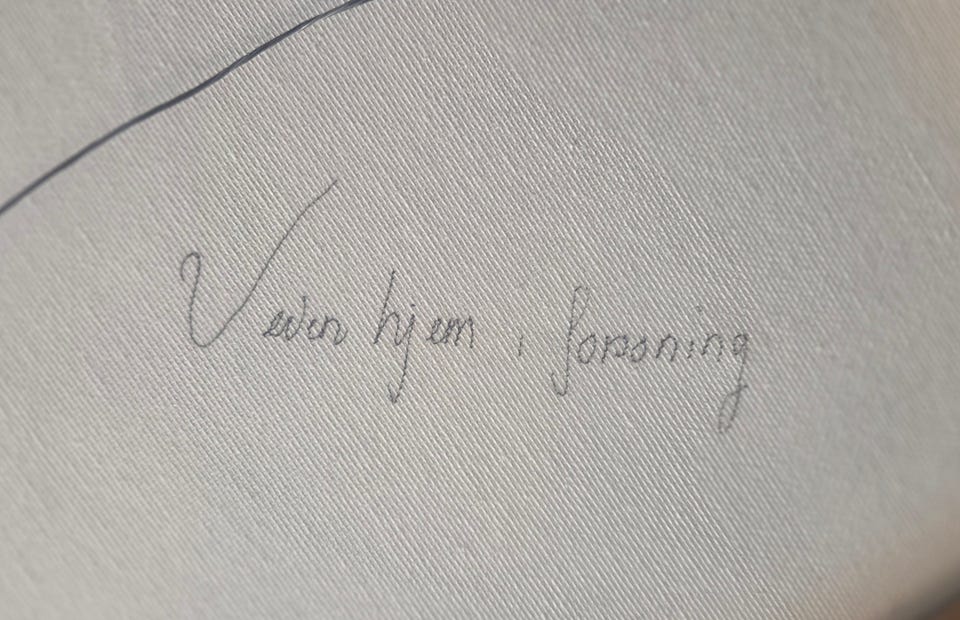 Veien hjem i forsoning